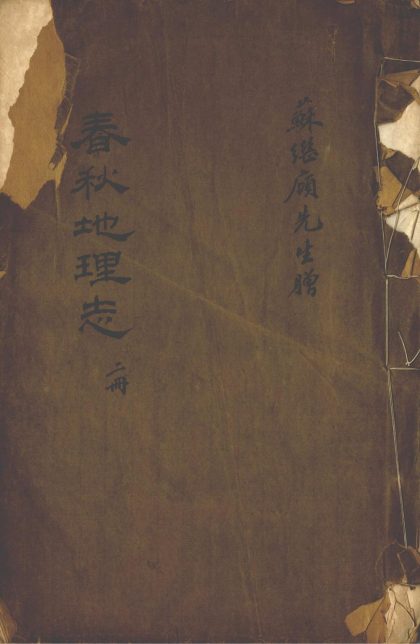 蘇繼廎先生贈
春秋地理志
二冊